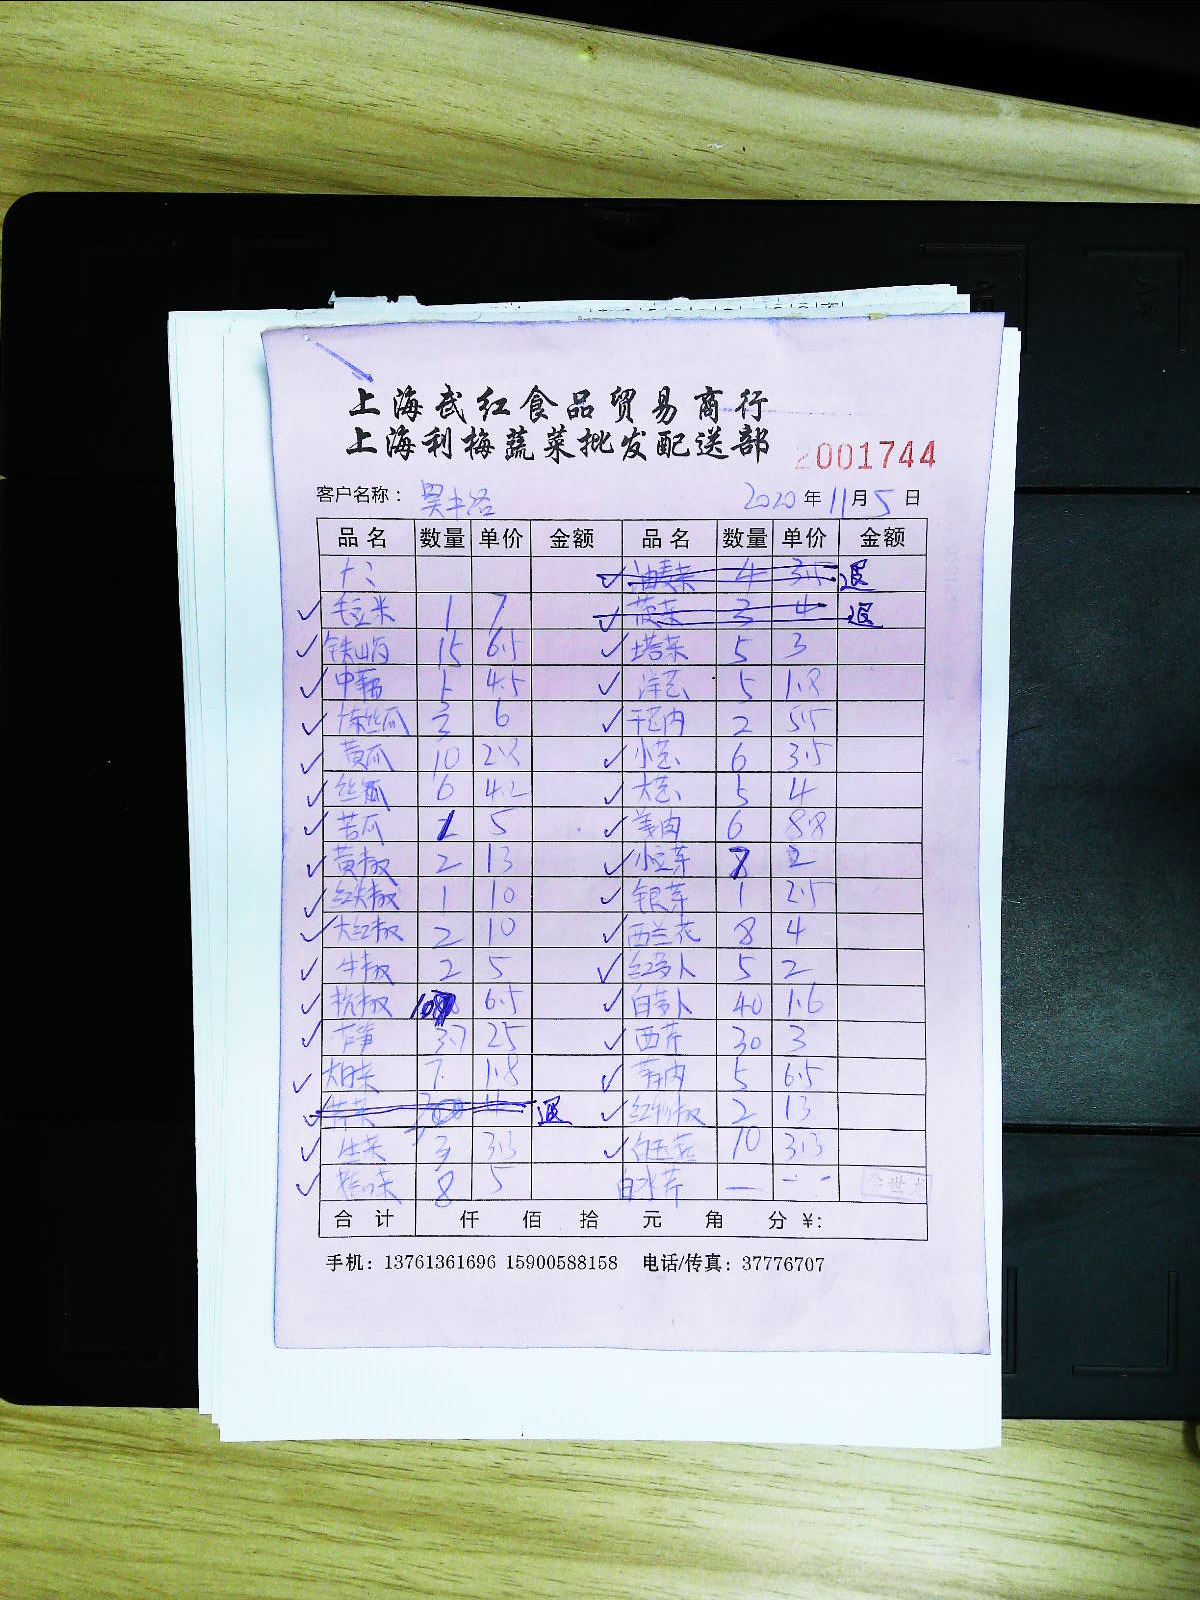 上海武红食品贸易商行
上海利梅蔬菜批发配送部
2001744
客户名称： 2020年11月5日
品名 数量 单价 金额 品名 数量 单价 金额
油麦菜 4 3.5 退
毛豆米 1 7 菠菜 3 4 退
铁山药 15 6.5 塔菜 5 3
中藕 5 4.5 洋芋 5 1.8
丝瓜 3 6 芋艿肉 2 5.5
黄瓜 10 2.8 小芋 6 3.5
丝瓜 6 4.2 大芋 5 4
苦瓜 5 姜肉 6 8.8
黄椒 2 13 小豆芽 2
红尖椒 1 10 银芽 1 2.5
大红椒 2 10 西兰花 8 4
牛椒 2 5 红萝卜 5 2
杭椒 6.5 白萝卜 40 1.6
芦笋 3.7 25 西芹 30 3
大白菜 7 1.8 茅肉 5 6.5
4 退 红椒 2 13
生菜 3 3.3 10 3.3
8 5 白水芹 — --
合计 仟 佰 拾 元 角 分 ¥:
手机：13761361696 15900588158 电话/传真：37776707